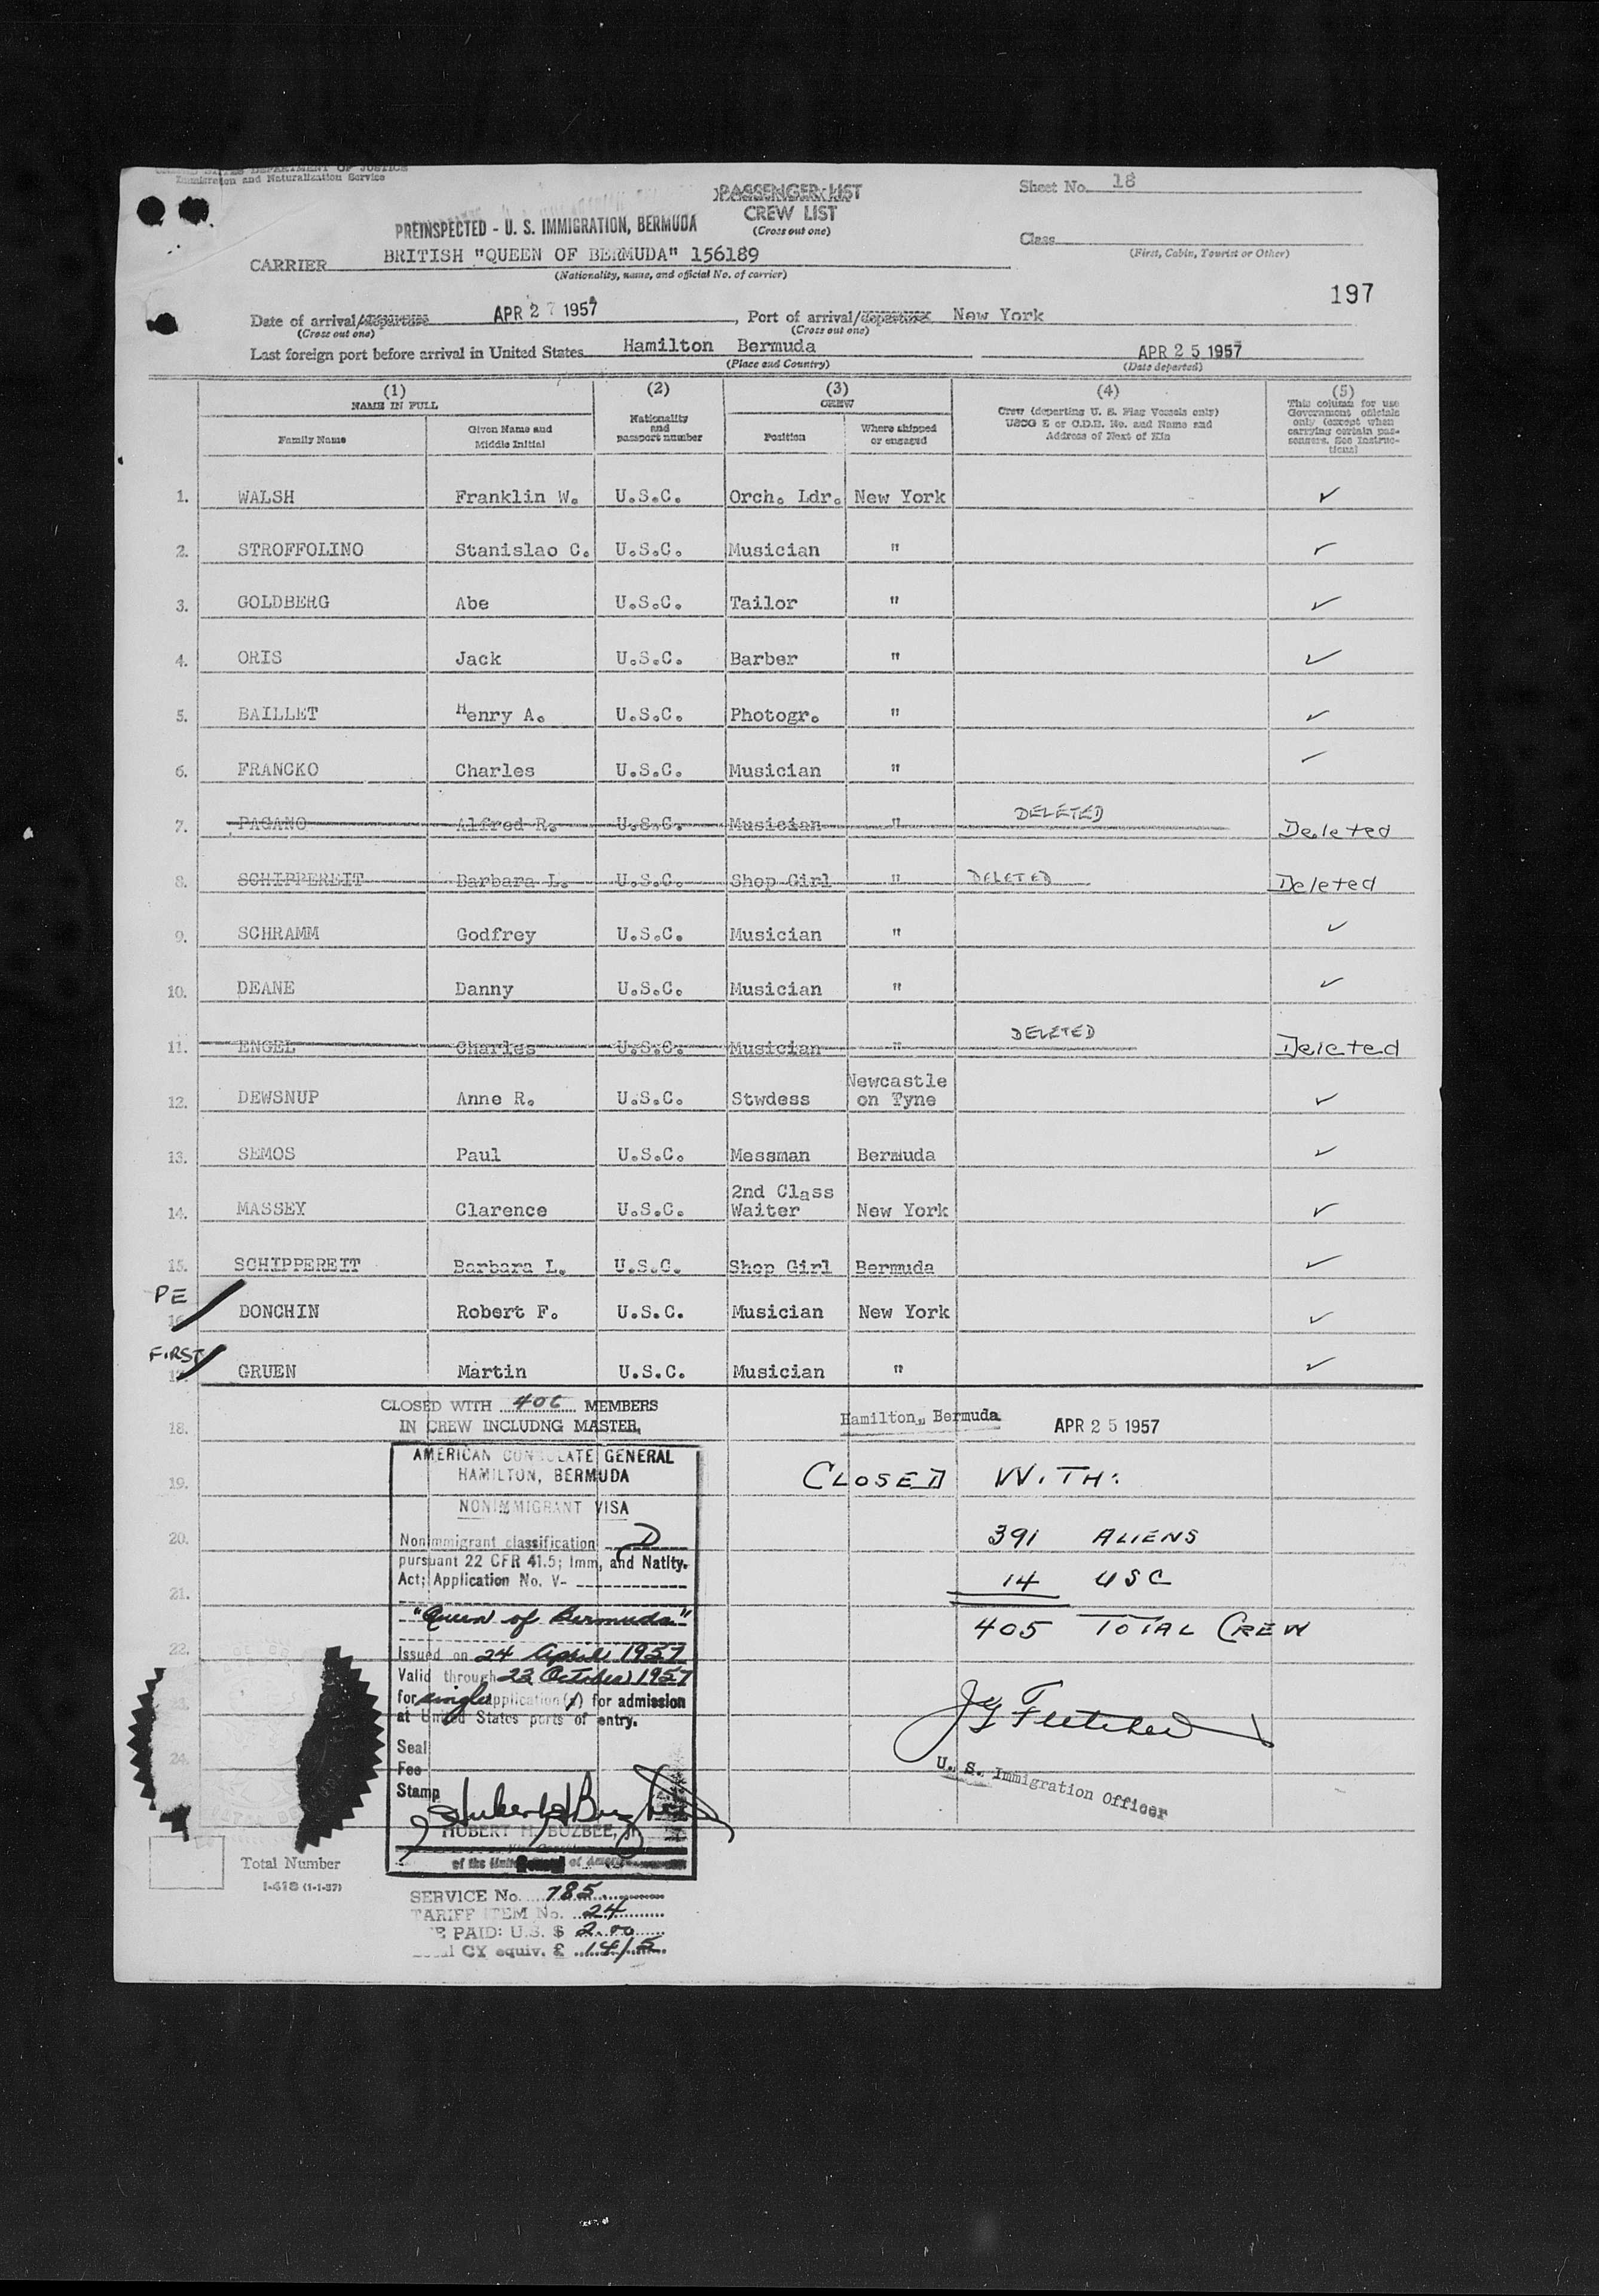 UNITED STATES DEPARTMENT OF JUSTICE
Immigration and Naturalization Service
PASSENGER LIST
CREW LIST
(Cross out one)
Sheet No. 18
PREINSPECTED - U. S. IMMIGRATION, BERMUDA
Class
(First, Cabin, Tourist or Other)
CARRIER BRITISH "QUEEN OF BERMUDA" 156189
(Nationality, name, and official No. of carrier)
197
Date of arrival/departure APR 27 1957, Port of arrival/departure New York
(Cross out one) (Cross out one)
Last foreign port before arrival in United States Hamilton Bermuda APR 25 1957
(Place and Country) (Date departed)
(1) (2) (3) (4) (5)
NAME IN FULL
Family Name
Given Name and Middle Initial
Nationality and passport number
CREW
Position
Where shipped or engaged
Crew (departing U. S. Flag Vessels only)
USCG E or C.D.B. No. and Name and
Address of Next of Kin
This column for use
Government officials
only (except when
carrying certain pas-
sengers. See Instruc-
tions)
1. WALSH Franklin W. U.S.C. Orch. Ldr. New York
2. STROFFOLINO Stanislao C. U.S.C. Musician "
3. GOLDBERG Abe U.S.C. Tailor "
4. ORIS Jack U.S.C. Barber "
5. BAILLET Henry A. U.S.C. Photogr. "
6. FRANCKO Charles U.S.C. Musician "
7. PAGANO Alfred R. U.S.C. Musician " DELETED Deleted
8. SCHIPPEREIT Barbara L. U.S.C. Shop Girl " DELETED Deleted
9. SCHRAMM Godfrey U.S.C. Musician "
10. DEANE Danny U.S.C. Musician "
11. ENGEL Charles U.S.C. Musician " DELETED Deleted
12. DEWSNUP Anne R. U.S.C. Stwdess Newcastle on Tyne
13. SEMOS Paul U.S.C. Messman Bermuda
14. MASSEY Clarence U.S.C. 2nd Class Waiter New York
15. SCHIPPEREIT Barbara L. U.S.C. Shop Girl Bermuda
PE
16. DONCHIN Robert F. U.S.C. Musician New York
FIRST
17. GRUEN Martin U.S.C. Musician "
CLOSED WITH 406 MEMBERS
IN CREW INCLUDNG MASTER.
18. Hamilton, Bermuda APR 25 1957
AMERICAN CONSULATE GENERAL
HAMILTON, BERMUDA
19. CLOSED WITH:
NONIMMIGRANT VISA
20. 391 ALIENS
Nonimmigrant classification D
pursuant 22 CFR 41.5; Imm. and Natlty.
Act; Application No. V-
21. 14 USC
"Queen of Bermuda"
405 TOTAL CREW
22.
Issued on 24 April 1957
Valid through 23 October 1957
23.
for single application(s) for admission
at United States ports of entry.
J G Fletcher
Seal
24.
Fee
Stamp
U. S. Immigration Officer
HUBERT H. BUZBEE, Jr
of the United States of America
Total Number
I-418 (1-1-57)
SERVICE No. 785
TARIFF ITEM No. 24
E PAID: U.S. $ 2.00
CY equiv. £ 14/5